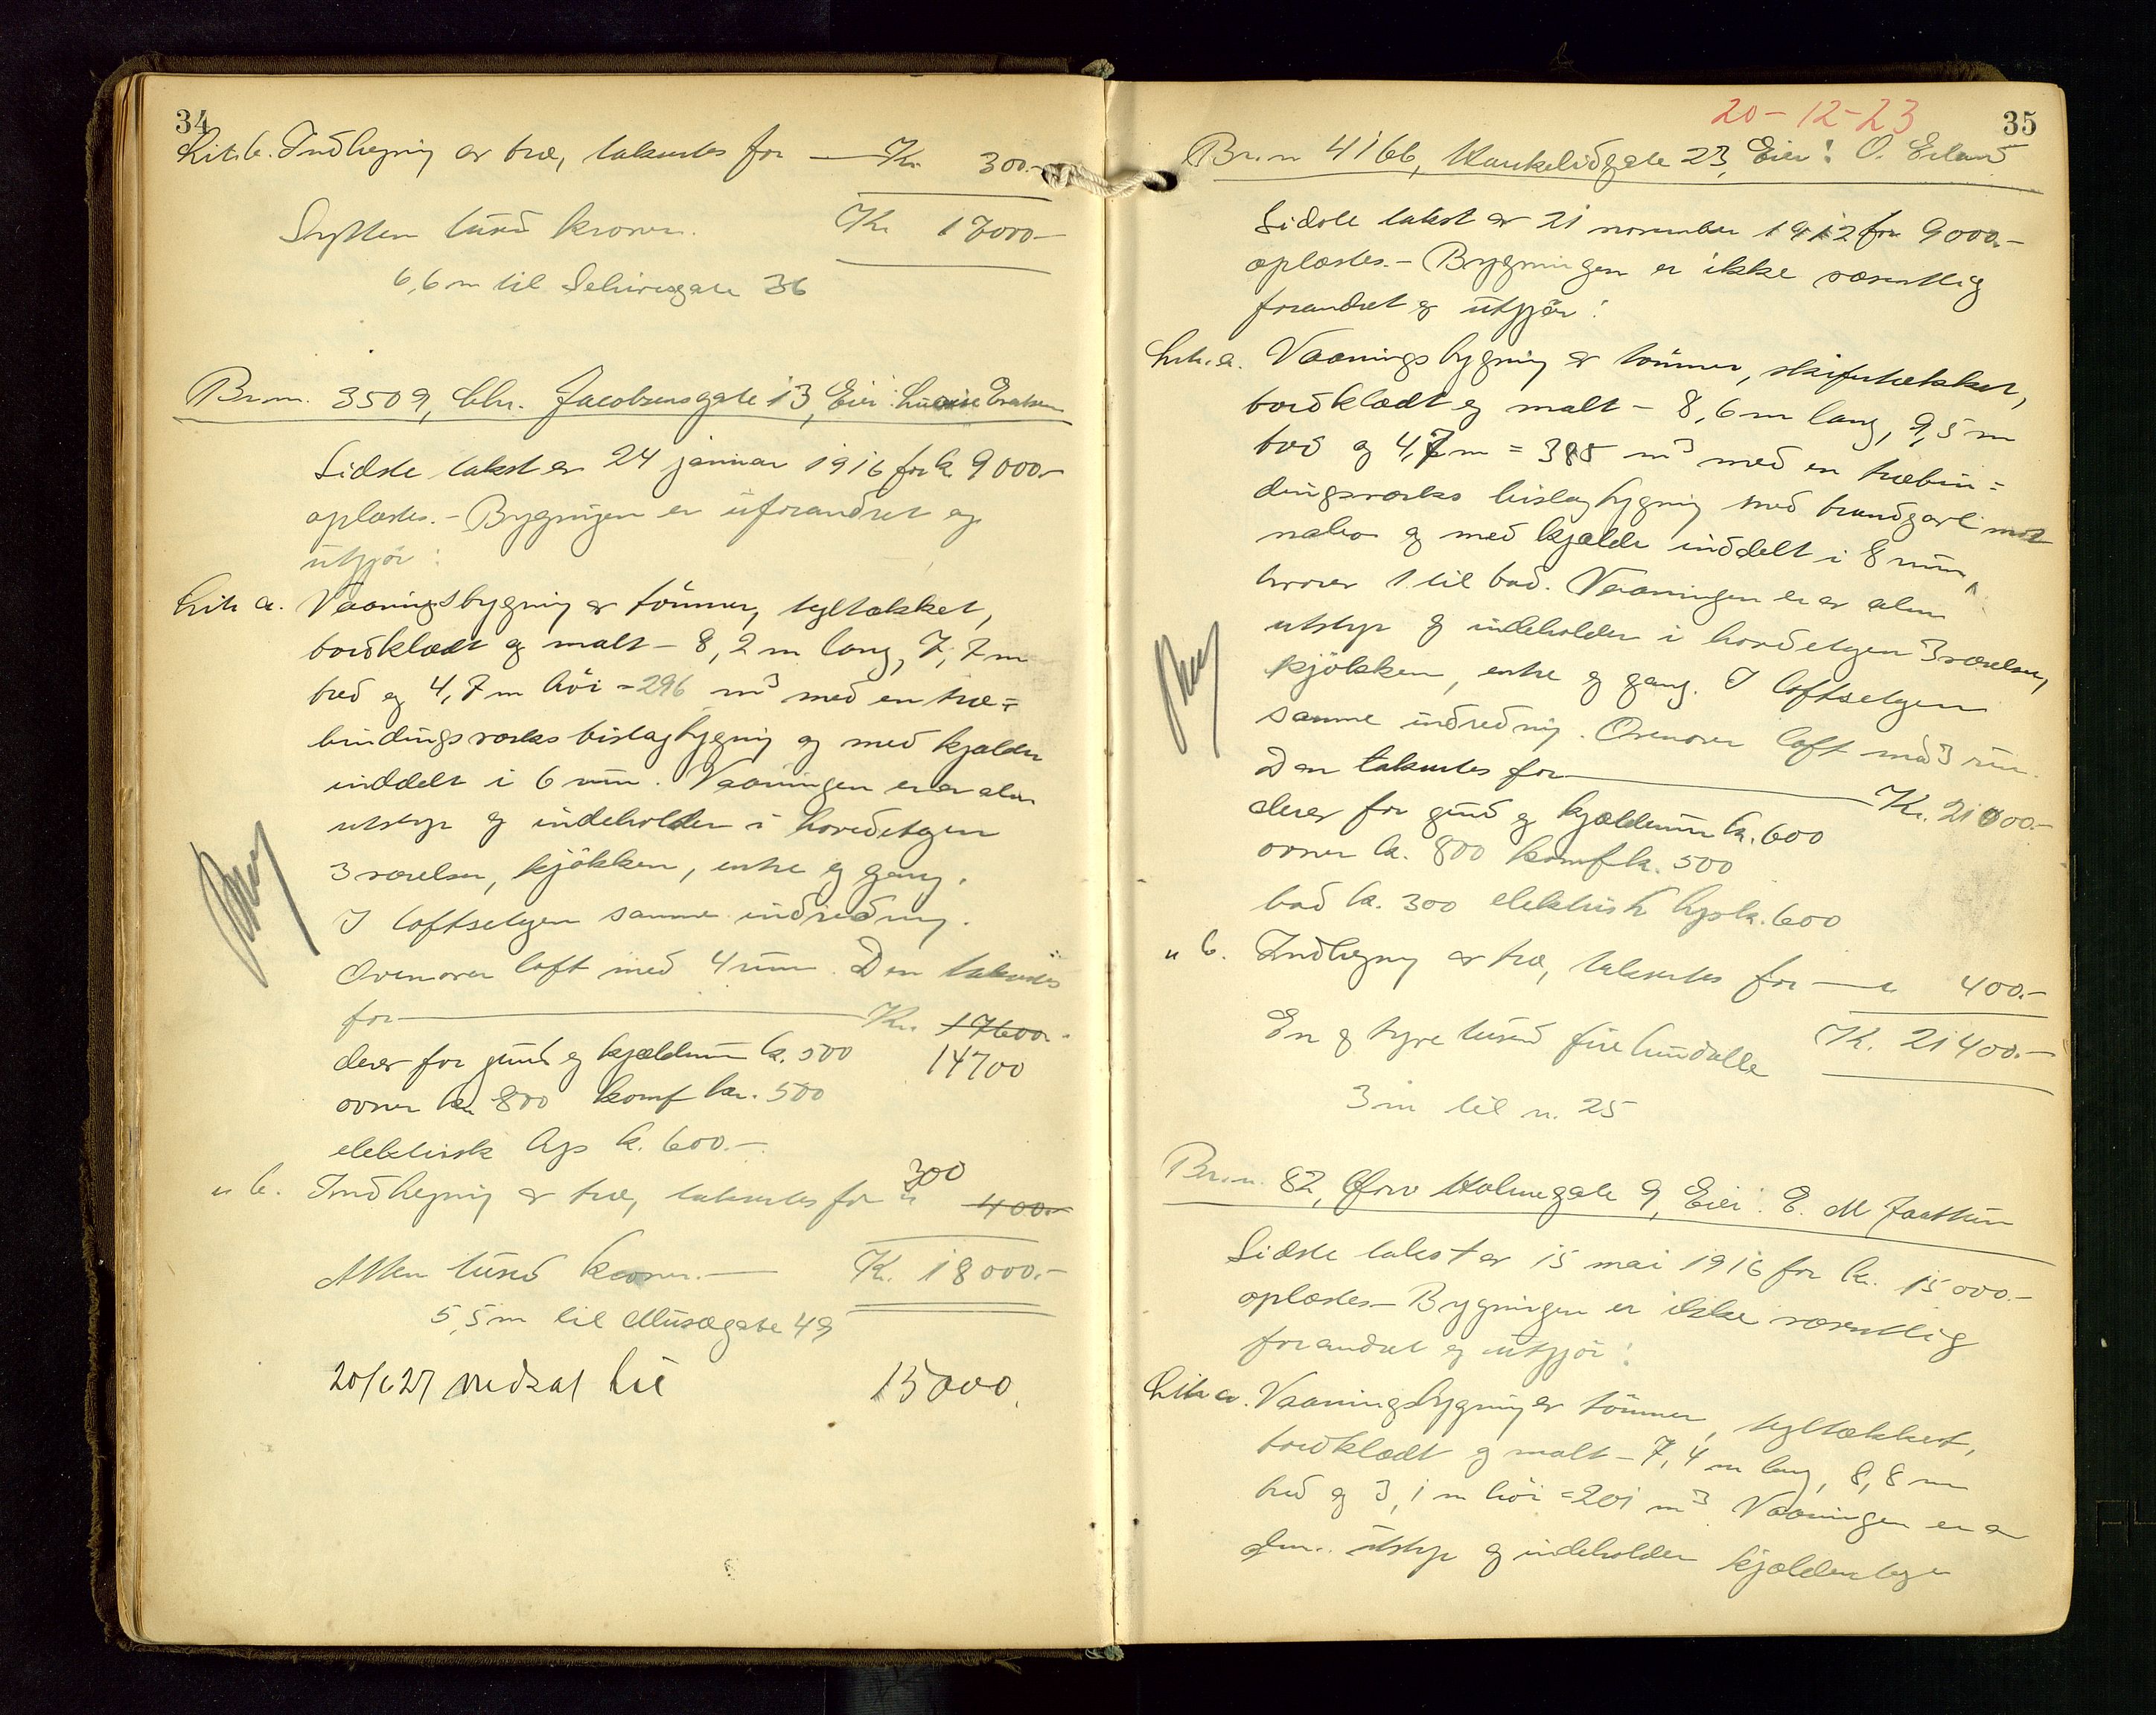 34
Lit. b. Indhegning av træ, takseres for — Kr. 300.-
Sytten tusen kroner. Kr 17000.-
6,6 m til Schivesgate 36
Br.nr. 3509, Chr. Jacobsensgate 13, Eier: Eratsen
Sidste takst av 24 januar 1916 for k. 9000.-
oplæstes. - Bygningen er uforandret og
utgjør:
Lit a. Vaaningsbygning av tømmer, tegltækket,
bordklædt og malt - 8,2 m lang, 7,7 m
bred og 4,7 m høi = 296 m³ med en træ=
bindingsverks bislagbygning og med kjelder
inddelt i 6 rum. Vaaningen er av alm
utstyr og indeholder i hovedetagen
3 værelser, kjøkken, entre og gang.
I loftsetagen samme indredning.
Ovenover loft med 4 rum. Den takseres
for — Kr. 17600.-
derav for grund og kjælderum k. 500 14700
ovner kr 800 komf kr. 500
elektrisk lys k. 600.-
300
" b. Indhegning av træ, takseres for " 400.-
Atten tusen kroner. — K. 18000.-
5,5 m til Musægate 49
20/6 27 nedsat til 15000.
20-12-23
35
Br.nr 4166, Haukelidgate 23, Eier: O. Erland
Sidste takst av 21 november 1912 for 9000.-
oplæstes. - Bygningen er ikke væsentlig
forandret og utgjør:
Lit. a. Vaaningsbygning av tømmer, skifertækket,
bordklædt og malt - 8,6 m lang, 9,5 m
bred og 4,7 m = 385 m³ med en træbin=
dingsverks bislagbygning med brandgavl mot
nabo og med kjælder inddelt i 8 rum
hvorav 1 til bad. Vaaningen er av alm
utstyr og indeholder i hovedetagen 3 værelser,
kjøkken, entre og gang. I loftsetagen
samme indredning. Ovenover loft med 3 rum.
Den takseres for — Kr. 21000.-
derav for grund og kjælderum k. 600
ovner k. 800 komf k. 500
bad k. 300 elektrisk lys k. 600
" b. Indhegning av træ, takseres for — " 400.-
En og tyve tusen fire hundrede K. 21400.-
3 m til n. 25
Br.nr. 82, Øvre Holmegate 9, Eier: E. M Jaatun
Sidste takst av 15 mai 1916 for k. 15000.-
oplæstes - Bygningen er ikke væsentlig
forandret og utgjør:
Lit a. Vaaningsbygning av tømmer, tegltækket,
bordklædt og malt - 7,4 m lang, 8,8 m
bred og 3,1 m høi = 201 m³. Vaaningen er av
alm. utstyr og indeholder kjælderetage